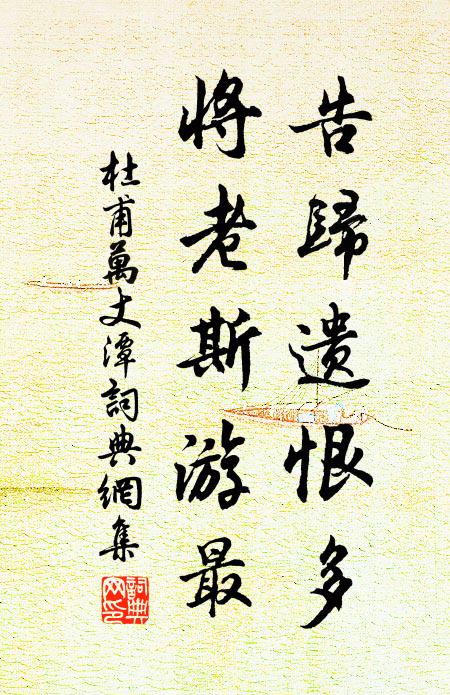 告歸遺恨多
將老斯游最
杜甫萬丈潭詞典網集
詞典網印